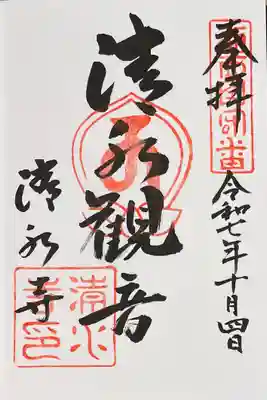 奉拝
令和七年十月四日
清水観音
清水寺
清水寺印